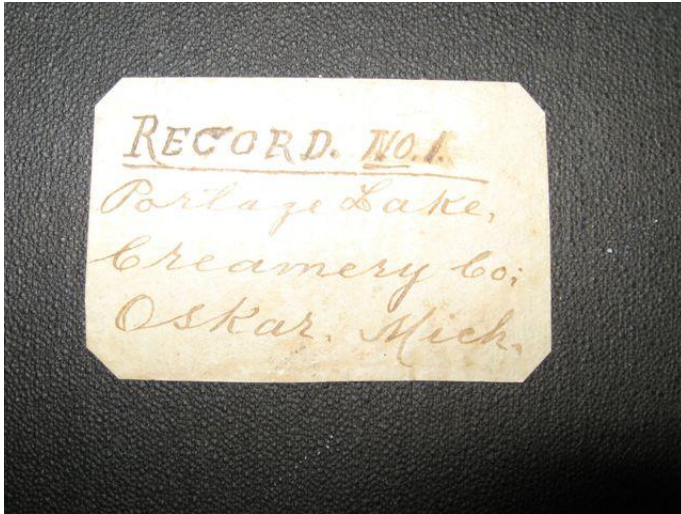 RECORD. NO. 1.
Portage Lake,
Creamery Co;
Oskar. Mich.